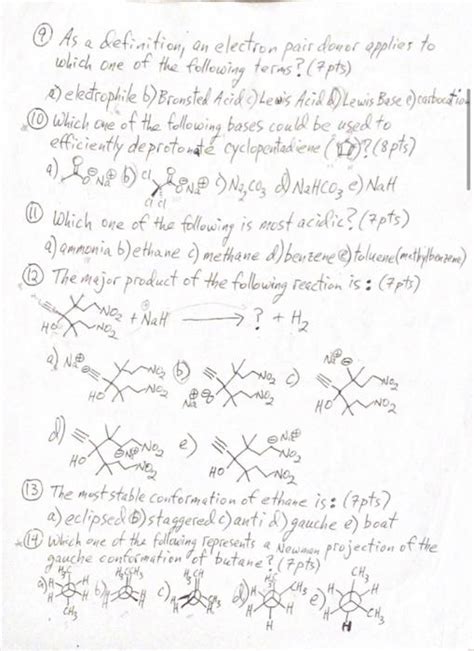 ⑨ As a definition, an electron pair donor applies to
which one of the following terms? (7pts)
a) electrophile b) Bronsted Acid c) Lewis Acid d) Lewis Base e) carbocation
⑩ Which one of the following bases could be used to
efficiently deprotonate cyclopentadiene ( )? (8pts)
a) O O⊖ Na⊕ b) Cl Cl Cl O O⊖ Na⊕ c) Na2CO3 d) NaHCO3 e) NaH
⑪ Which one of the following is most acidic? (7pts)
a) ammonia b) ethane c) methane d) benzene e) toluene (methylbenzene)
⑫ The major product of the following reaction is: (7pts)
HO NO2 NO2 + NaH → ? + H2
a) Na⊕ ⊖ HO NO2 NO2 b) Na⊕ ⊖O NO2 NO2 c) Na⊕ ⊖ HO NO2 NO2
d) HO ⊖ Na⊕ NO2 NO2 e) HO ⊖ Na⊕ NO2 NO2
⑬ The most stable conformation of ethane is: (7pts)
a) eclipsed b) staggered c) anti d) gauche e) boat
⑭ Which one of the following represents a Newman projection of the
gauche conformation of butane? (7pts)
a) H H H H CH3 b) H H c) H d) H H CH3 H H e) CH3 H H H CH3 H